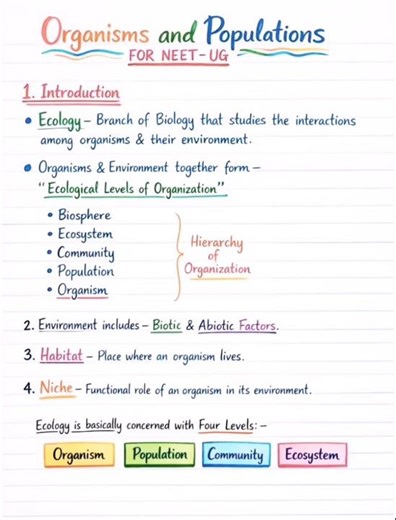 Organisms and Populations
FOR NEET-UG
1. Introduction
• Ecology – Branch of Biology that studies the interactions
among organisms & their environment.
• Organisms & Environment together form –
"Ecological Levels of Organization"
• Biosphere
• Ecosystem
• Community
• Population
• Organism
Hierarchy
of
Organization
2. Environment includes – Biotic & Abiotic Factors.
3. Habitat – Place where an organism lives.
4. Niche – Functional role of an organism in its environment.
Ecology is basically concerned with Four Levels:–
Organism Population Community Ecosystem